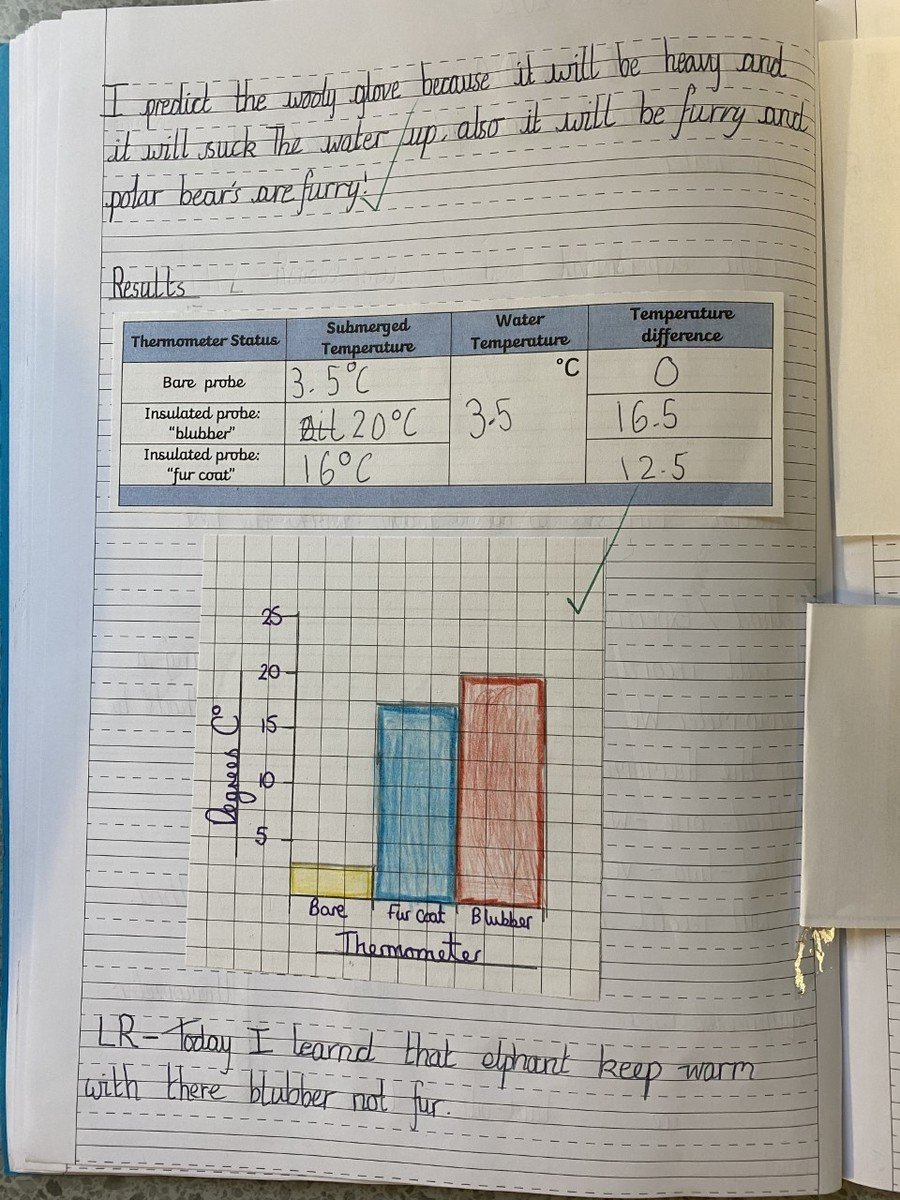 I predict the wooly glove because it will be heavy and
it will suck the water up. also it will be furry and
polar bear's are furry!
Results
Thermometer Status Submerged Temperature Water Temperature Temperature difference
Bare probe 3.5°C °C 0
Insulated probe: "blubber" 20°C 3.5 16.5
Insulated probe: "fur coat" 16°C 12.5
25
20
15
10
5
Degrees C°
Bare Fur Coat Blubber
Thermometer
LR - Today I learnd that elphant keep warm
with there blubber not fur.